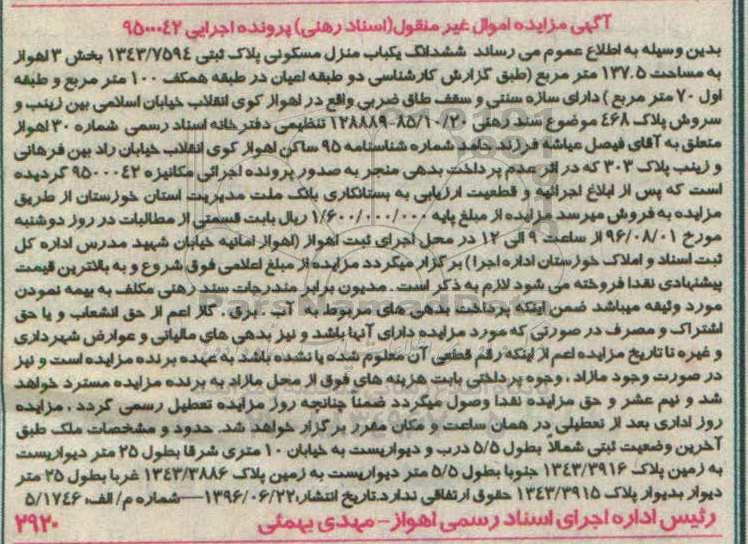 آگهی مزایده اموال غیر منقول(اسناد رهنی) پرونده اجرایی ۹۵۰۰۰۴۲
بدین وسیله به اطلاع عموم می رساند ششدانگ یکباب منزل مسکونی پلاک ثبتی ۱۳۴۳/۷۵۹۴ بخش ۳ اهواز
به مساحت ۱۳۷.۵ متر مربع (طبق گزارش کارشناسی دو طبقه اعیان در طبقه همکف ۱۰۰ متر مربع و طبقه
اول ۷۰ متر مربع) دارای سازه سنتی و سقف طاق ضربی واقع در اهواز کوی انقلاب خیابان اسلامی بین زینب و
سروش پلاک ۴۶۸ موضوع سند رهنی ۸۵/۱۰/۲۰-۱۲۸۸۸۹ تنظیمی دفتر خانه اسناد رسمی شماره ۳۰ اهواز
متعلق به آقای فیصل عیاشه فرزند حامد شماره شناسنامه ۹۵ ساکن اهواز کوی انقلاب خیابان راد بین فرهانی
و زینب پلاک ۳۰۳ که در اثر عدم پرداخت بدهی منجر به صدور پرونده اجرائی مکانیزه ۹۵۰۰۰۴۲ گردیده
است که پس از ابلاغ اجرائیه و قطعیت ارزیابی به بستانکاری بانک ملت مدیریت استان خوزستان از طریق
مزایده به فروش میرسد مزایده از مبلغ پایه ۱/۶۰۰/۰۰۰/۰۰۰ ریال بابت قسمتی از مطالبات در روز دوشنبه
مورخ ۹۶/۰۸/۰۱ از ساعت ۹ الی ۱۲ در محل اجرای ثبت اهواز (اهواز امانیه خیابان شهید مدرس اداره کل
ثبت اسناد و املاک خوزستان اداره اجرا) برگزار میگردد مزایده از مبلغ اعلامی فوق شروع و به بالاترین قیمت
پیشنهادی نقدا فروخته می شود لازم به ذکر است . مدیون برابر مندرجات سند رهنی مکلف به بیمه نمودن
مورد وثیقه میباشد ضمن اینکه پرداخت بدهی های مربوط به آب . برق . گاز اعم از حق انشعاب و یا حق
اشتراک و مصرف در صورتی که مورد مزایده دارای آنها باشد و نیز بدهی های مالیاتی و عوارض شهرداری
و غیره تا تاریخ مزایده اعم از اینکه رقم قطعی آن معلوم شده یا نشده باشد به عهده برنده مزایده است و نیز
در صورت وجود مازاد ، وجوه پرداختی بابت هزینه های فوق از محل مازاد به برنده مزایده مسترد خواهد
شد و نیم عشر و حق مزایده نقدا وصول میگردد ضمنا چنانچه روز مزایده تعطیل رسمی گردد ، مزایده
روز اداری بعد از تعطیلی در همان ساعت و مکان مقرر برگزار خواهد شد. حدود و مشخصات ملک طبق
آخرین وضعیت ثبتی شمالا بطول ۵/۵ درب و دیواریست به خیابان ۱۰ متری شرقا بطول ۲۵ متر دیواریست
به زمین پلاک ۱۳۴۳/۳۹۱۶ جنوبا بطول ۵/۵ متر دیواریست به زمین پلاک ۱۳۴۳/۳۸۸۶ غربا بطول ۲۵ متر
دیوار بدیوار پلاک ۱۳۴۳/۳۹۱۵ حقوق ارتفاقی ندارد.تاریخ انتشار:۱۳۹۶/۰۶/۲۲——شماره م/ الف: ۵/۱۷۴۶
رئیس اداره اجرای اسناد رسمی اهواز - مهدی بهمئی
۲۹۲۰
ParsNamadData